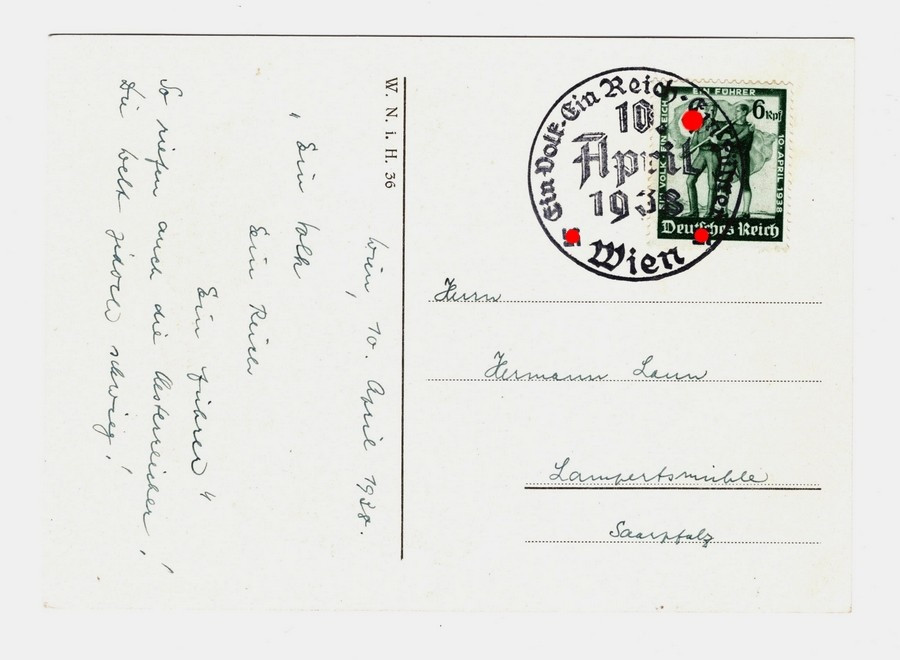 Wien, 10. April 1938.
" Ein Volk
Ein Reich
Ein Führer "
So riefen auch die Oesterreicher!
Die Welt jedoch schwieg!
W. N. i. H. 36
Ein Volk-Ein Reich-Ein Führer
10.
April
1938
Wien
EIN VOLK EIN REICH
EIN FÜHRER
10. APRIL 1938
6 Rpf
Deutsches Reich
Herrn
Hermann
Lampertsmühle
Saarpfalz